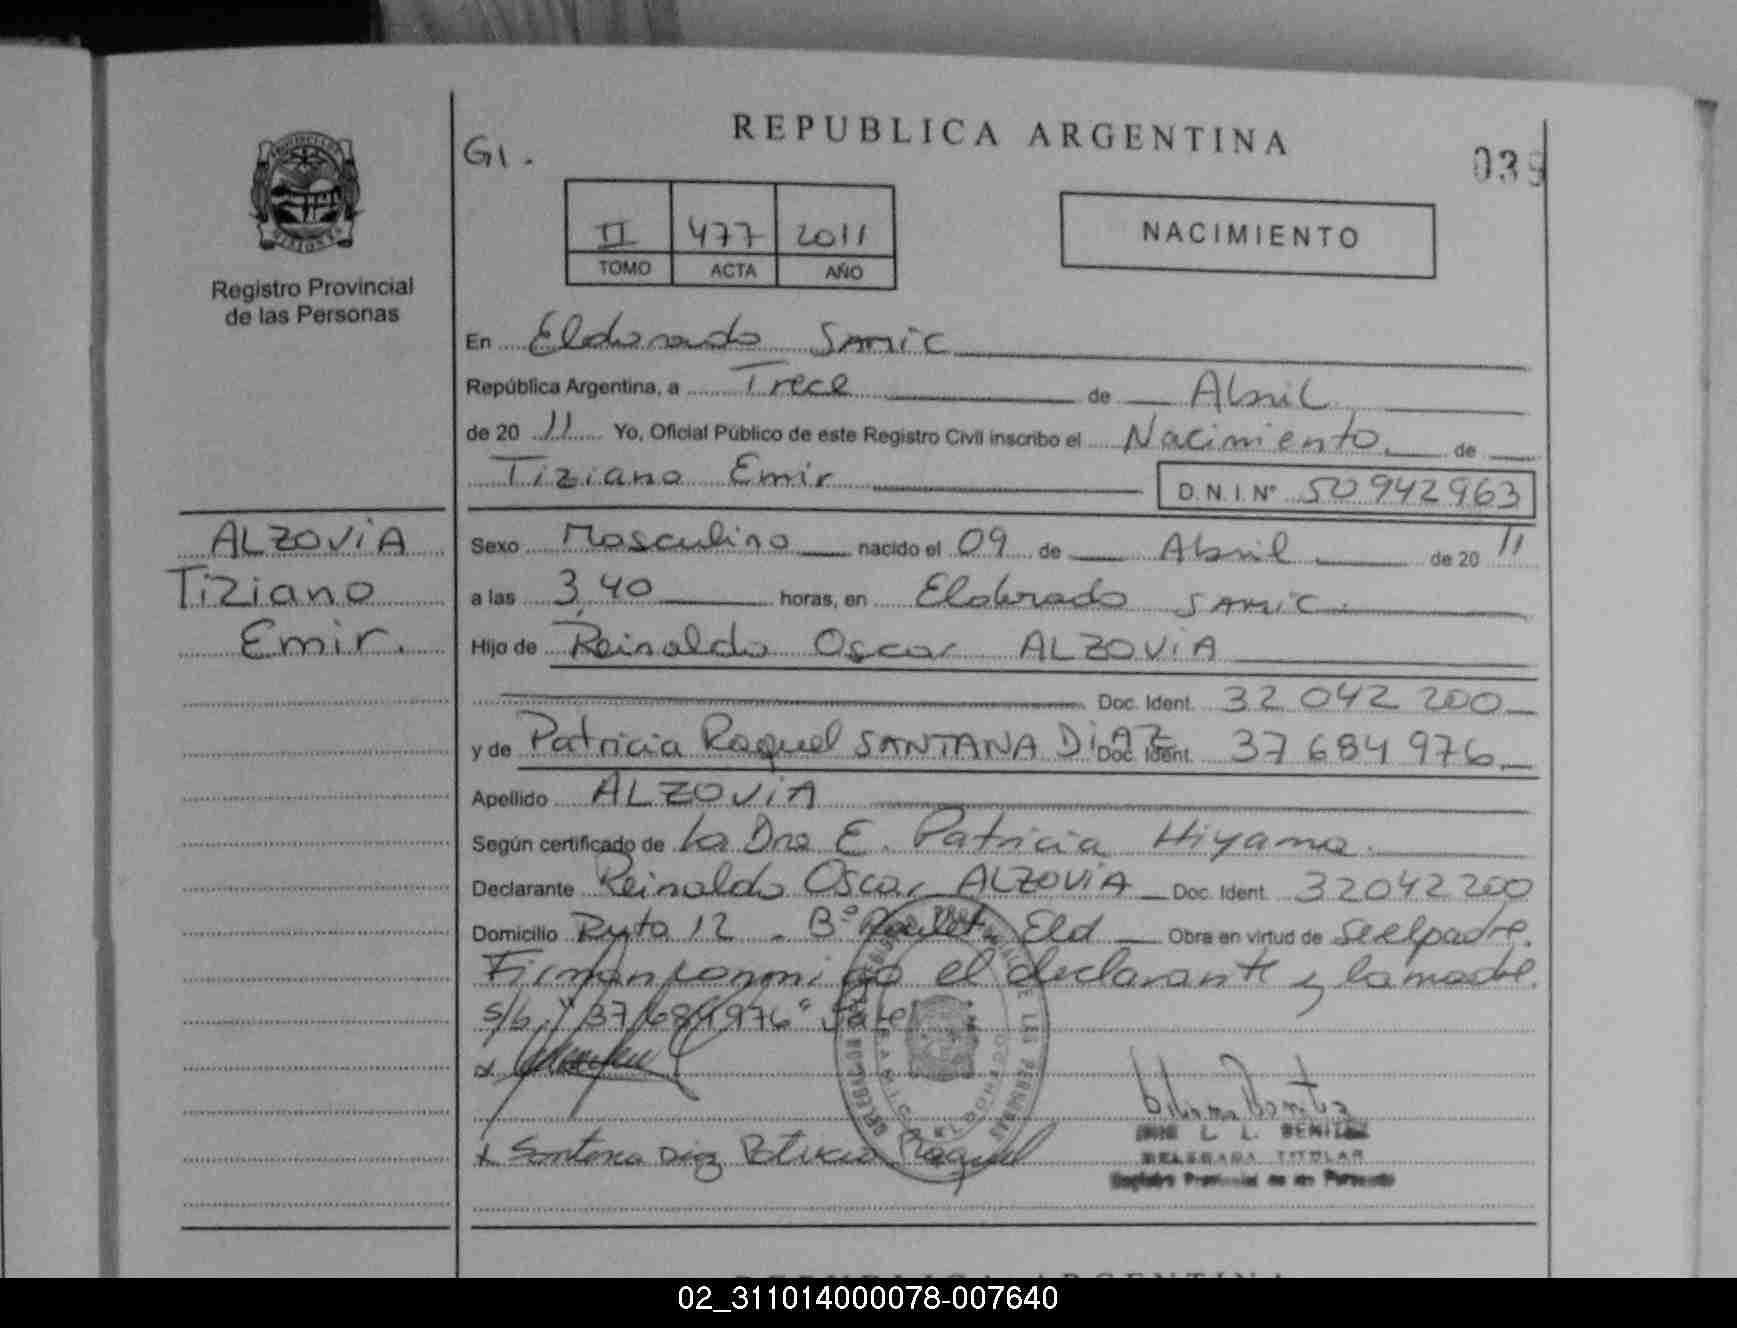 REPUBLICA ARGENTINA
G1.
039
II 477 2011
TOMO ACTA AÑO
NACIMIENTO
Registro Provincial
de las Personas
En Eldorado SAMIC
República Argentina, a Trece de Abril
de 20 11 Yo, Oficial Público de este Registro Civil inscribo el Nacimiento de
Tiziano Emir D.N.I.Nº 50942963
ALZOVIA
Tiziano
Emir.
Sexo Masculino nacido el 09 de Abril de 20 11
a las 3,40 horas, en Eldorado SAMIC.
Hijo de Reinaldo Oscar ALZOVIA
Doc. Ident. 32 042 200
y de Patricia Raquel SANTANA DIAZ Doc. Ident. 37 684 976
Apellido ALZOVIA
Según certificado de La Dra E. Patricia Hiyama.
Declarante Reinaldo Oscar ALZOVIA Doc. Ident. 32042200
Domicilio Ruta 12 - Bº Eld Obra en virtud de ser el padre.
Firman conmigo el declarante y la madre.
s/b: "37/684976" Vale
x
x Santana Diaz Patricia Raquel
L. L. BENITEZ
DELEGADA TITULAR
Registro Provincial de las Personas
REPUBLICA ARGENTINA
02_311014000078-007640